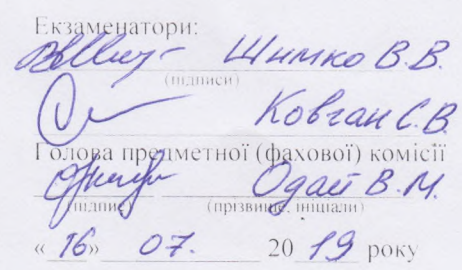 Екзаменатори:
Шимко В.В.
(підписи)
Ковган С.В.
Голова предметної (фахової) комісії
Одай В.М.
(підпис) (прізвище, ініціали)
« 16» 07. 20 19 року